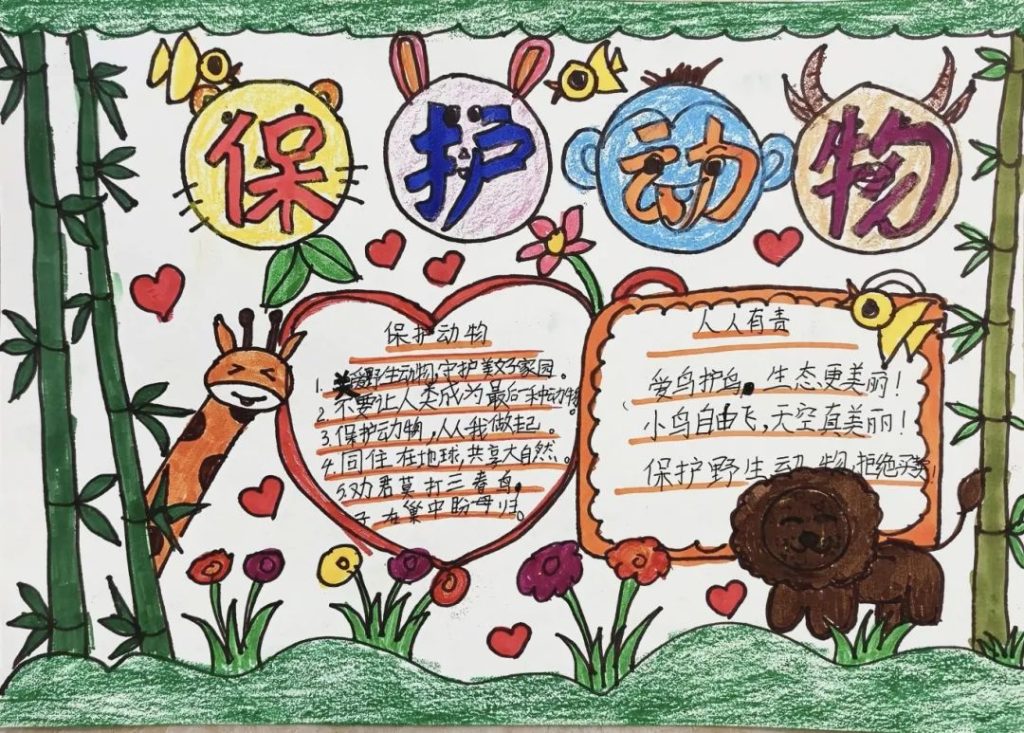 保护动物
保护动物
1.爱野生动物,守护美好家园。
2.不要让人类成为最后一种动物。
3.保护动物,从我做起。
4.同住在地球,共享大自然。
5.劝君莫打三春鸟,
子在巢中盼母归。
人人有责
爱鸟护鸟,生态更美丽!
小鸟自由飞,天空真美丽!
保护野生动物,拒绝买卖!